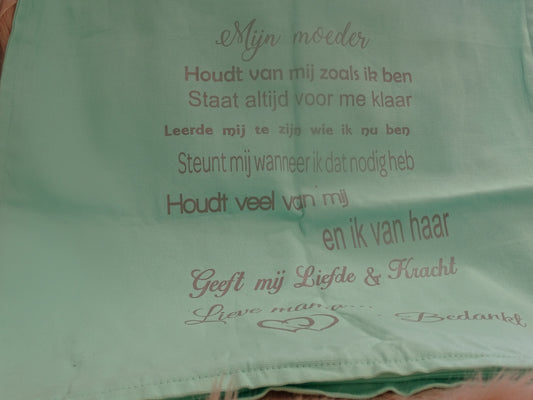 Mijn moeder
Houdt van mij zoals ik ben
Staat altijd voor me klaar
Leerde mij te zijn wie ik nu ben
Steunt mij wanneer ik dat nodig heb
Houdt veel van mij
en ik van haar
Geeft mij Liefde & Kracht
Lieve mama.... Bedankt